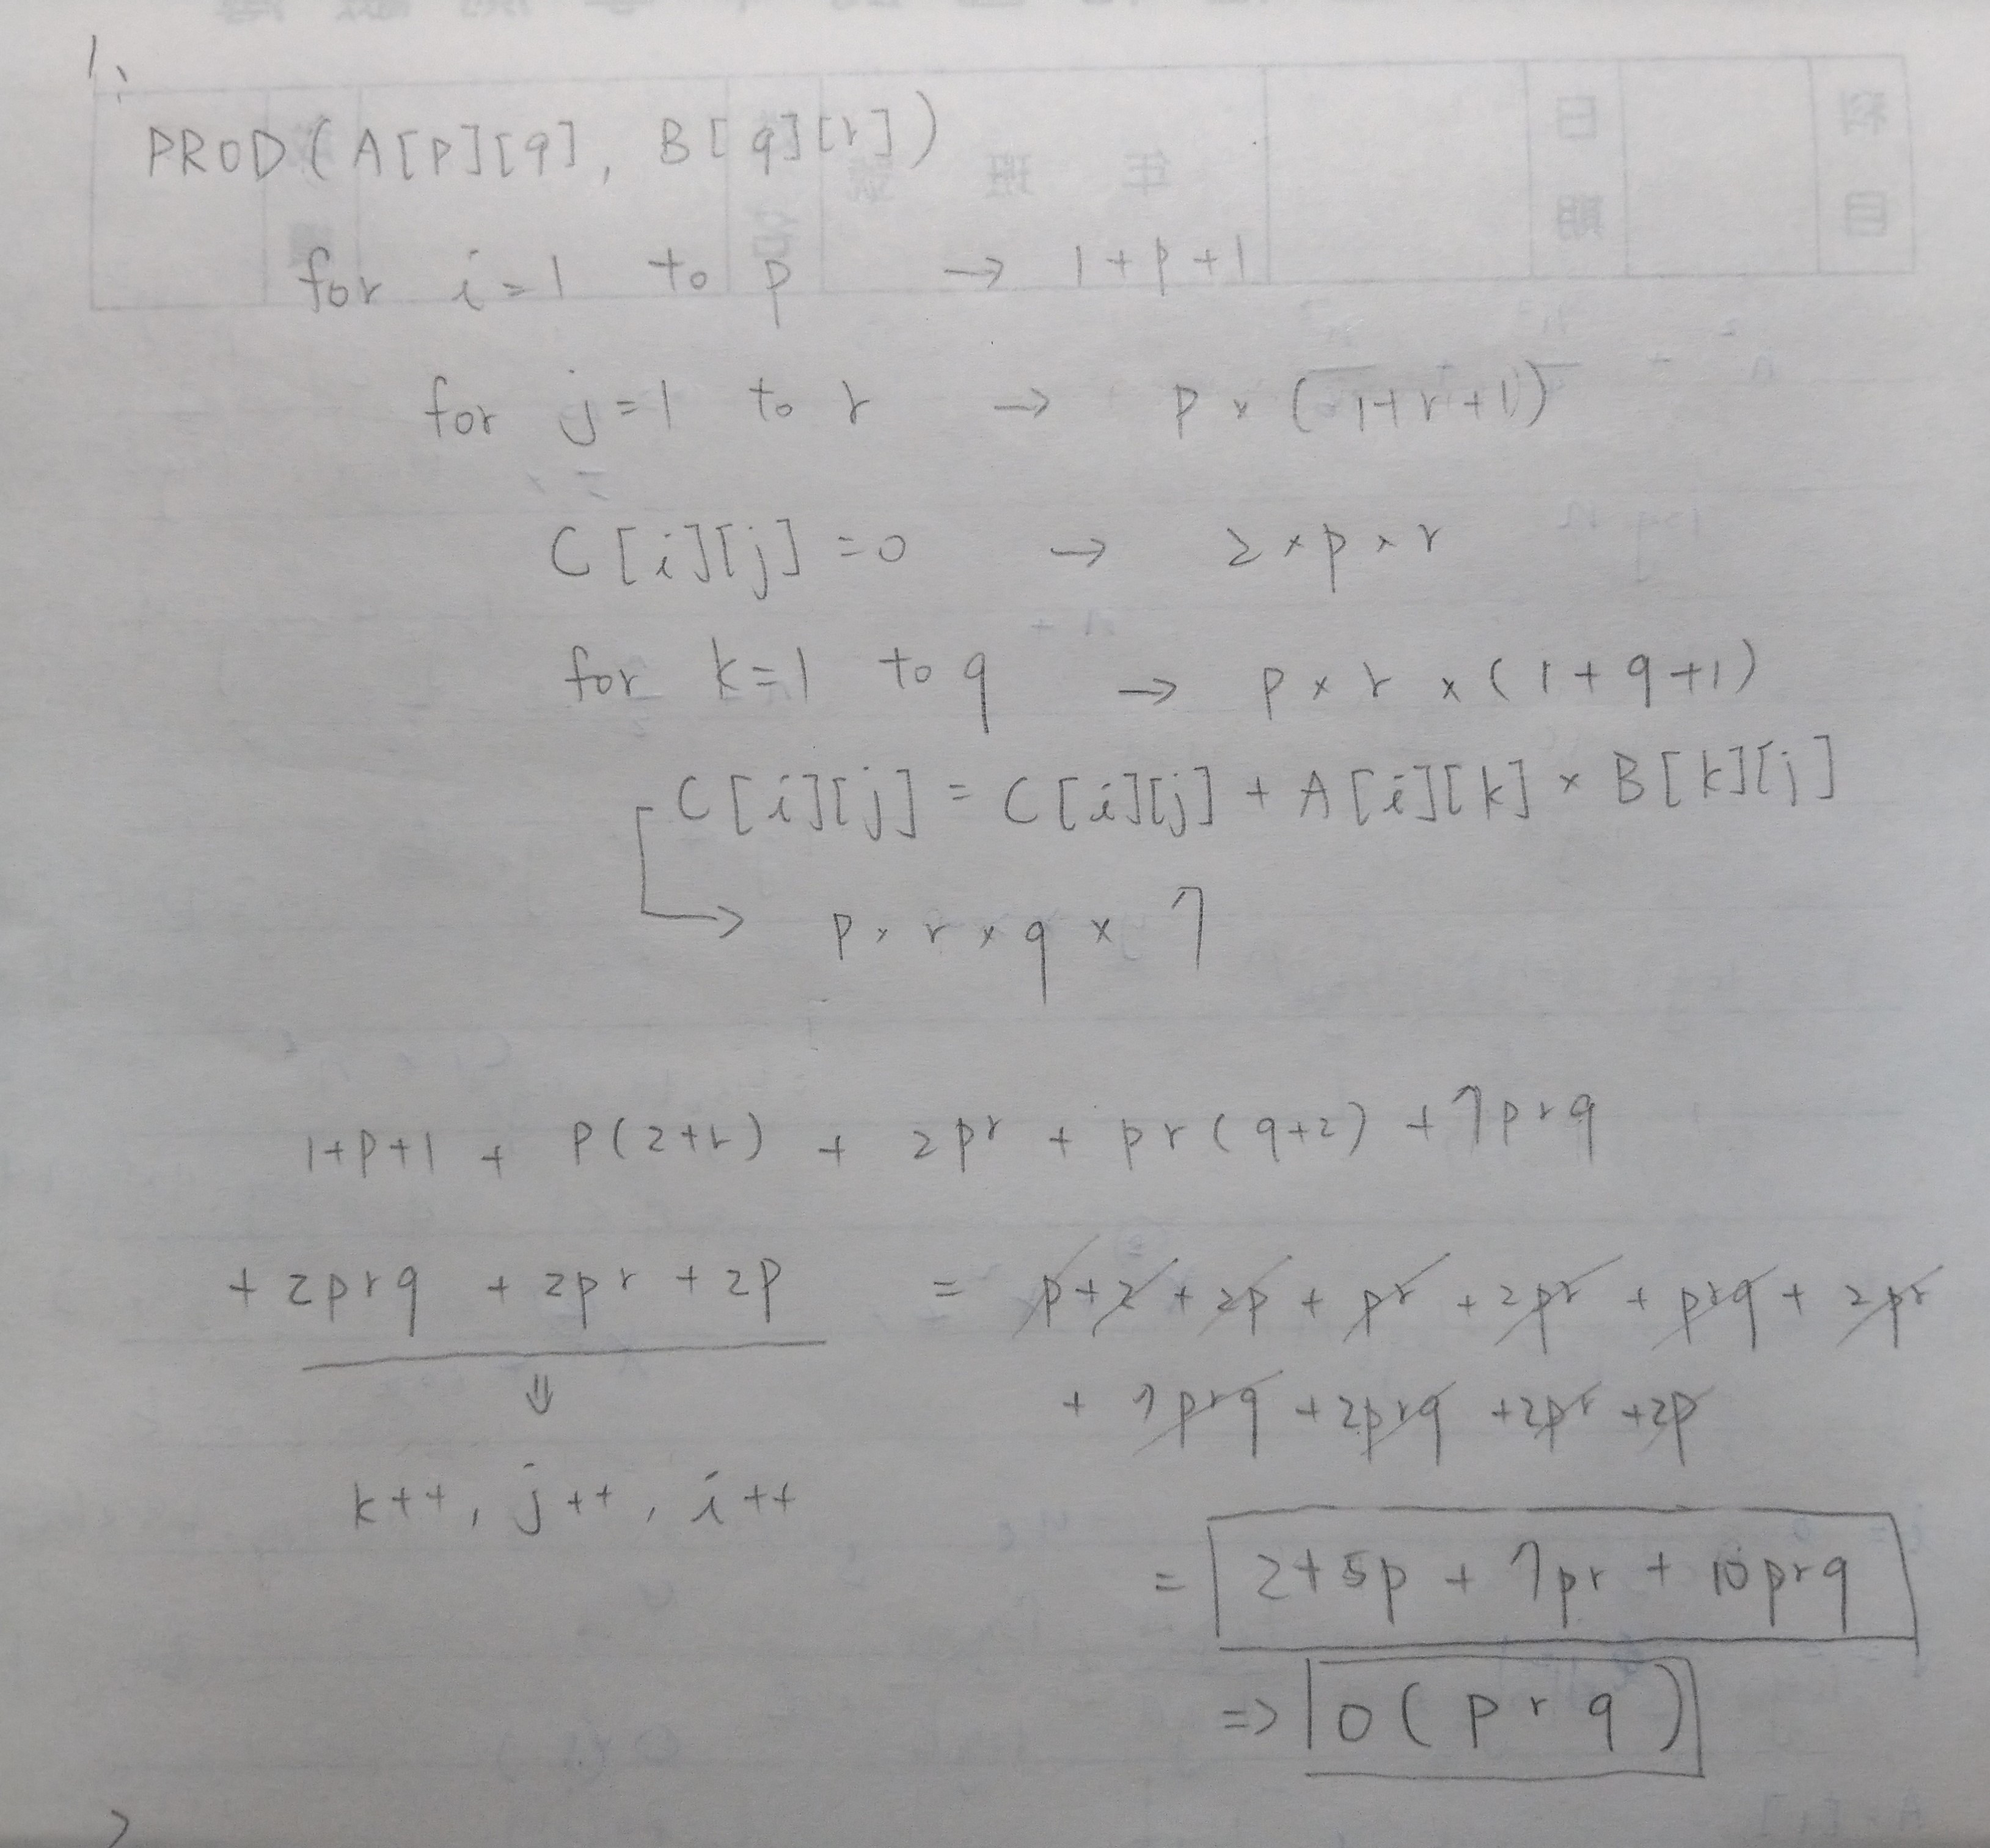 1、
PROD(A[p][q], B[q][r])
for i=1 to p → 1+p+1
for j=1 to r → p×(1+r+1)
C[i][j]=0 → 2×p×r
for k=1 to q → p×r×(1+q+1)
C[i][j] = C[i][j] + A[i][k] × B[k][j]
→ p×r×q×7
1+p+1 + p(2+r) + 2pr + pr(q+2) + 7prq
+ 2prq + 2pr + 2p = p+2+2p+pr+2pr+prq+2pr
⇓ + 7prq+2prq+2pr+2p
k++, j++, i++
= 2+5p+7pr+10prq
=> O(prq)